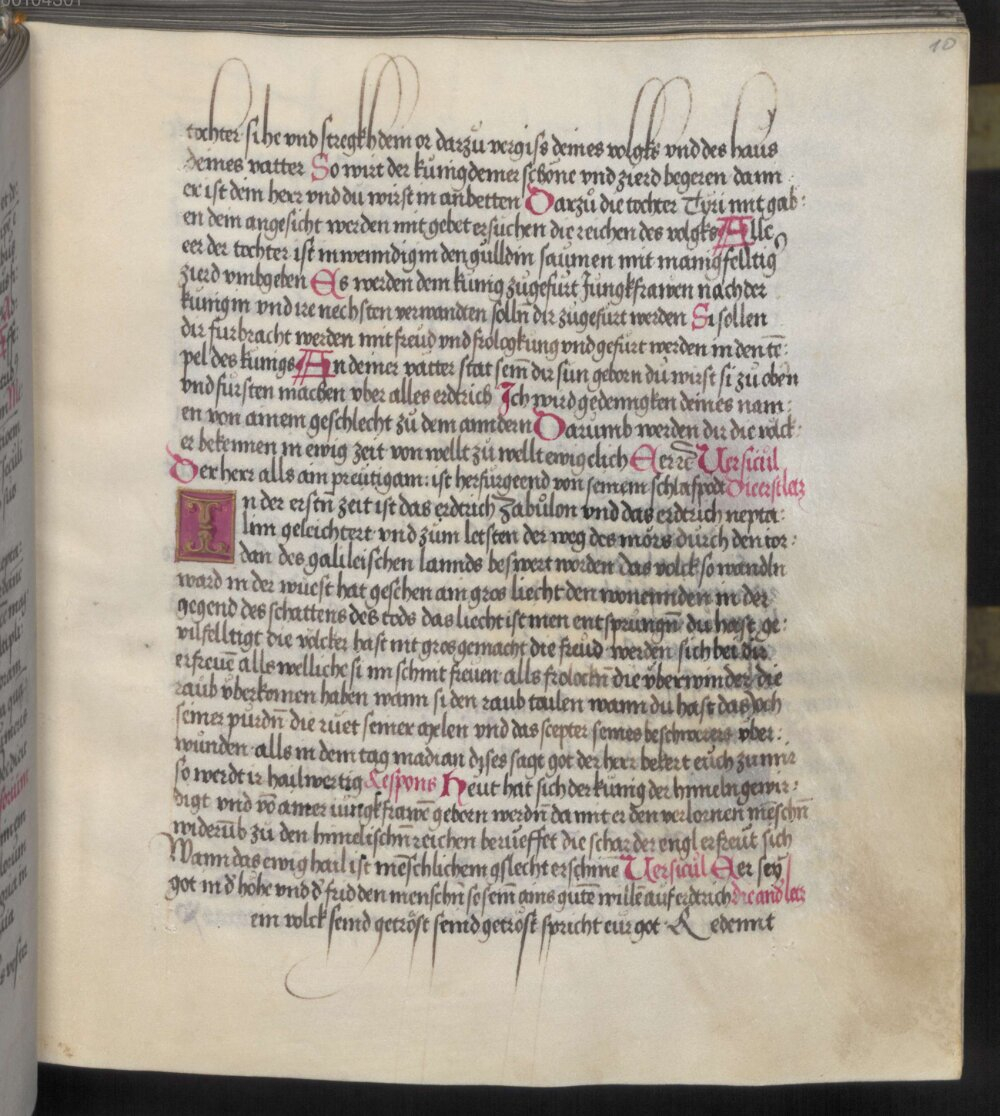 10
tochter sihe vnd stregkh dein or darzů vergiss deines volgks vnd des haus
deines vatter So wirt der kunig deiner schöne vnd zierd begeren dann
er ist dem herr vnd du wirst in anbetten Darzů die tochter Tyri mit gab:
en dem angesicht werden mit gebet ersuchen die reichen des volgks Alle
eer der tochter ist inwenndig in den gulldin saumen mit manigfelltig
zierd vmbgeben Es werden dem kunig zůgefurt Jungkfrawen nach der
kunigin vnd ire nechsten verwandten solln̄ dir zůgefurt werden Si sollen
dir furbracht werden mit freud vnd frologkung vnd gefurt werden in den tē:
pel des kunigs An deiner vatter stat sein̄ dir sun geborn du wirst si zu oben
vnd fursten machen vber alles erdtrich Ich wird gedenngken deines nam:
en von ainem geschlecht zů dem anndern Darumb werden dir die volck:
er bekennen in ewig zeit von wellt zů wellt ewigclich Eer ꝛc̄ Versicul
Der herr alls ain preutigam: ist herfurgeend von seinem schlafpodt Die erst letz
In der erstn̄ zeit ist das erdtrich Zabulon vnd das erdtrich nepta:
lim geleichtert vnd zům letsten der weg des mörs durch den ior:
dan des galileischen lannds beswert worden das volck so wandln
ward in der wuest hat gesehen ain gros liecht den wonennden in der
gegend des schattens des tods das liecht ist inen entsprungn̄ du hast ge:
vilfelltigt die völcker hast nit gros gemacht die freud werden sich bei dir
erfreuē alls welliche si im schnit freuen alls frolockn̄ die vberwinder die
raub vberkomen haben wann si den raub tailen wann du hast das joch
seiner purdn̄ die ruet seiner axlen vnd das scepter seines beschwerers vber:
wunden alls in dem tag madian dises sagt got der herr bekert euch zu mir
so werdt ir hailwertig Respons Heut hat sich der kunig der himeln gewir:
digt vnd vō ainer iungkfrawē geborn werdn̄ da mit er den verlornen mēschn̄
widerūb zu den himelischn̄ reichen berueffet die schar der engl erfreut sich
Wann das ewig hail ist mēschlichem gslecht erschinē Versicul Eer sey
got in d' höhe vnd d' frid den menschn̄ so sein̄ ains gutē willē auf erdtrich die and' letz
ein volck seind getröst seind getröst spricht eur got Redennt